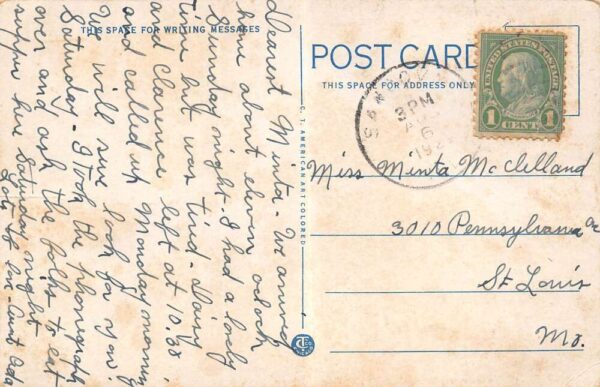 THIS SPACE FOR WRITING MESSAGES
Dearest Minta - We arrived
home about eleven oclock
Sunday night - I had a lovely
time but was tired - Daisy
and Clarence left at 10.30
and called up Monday morning
We will sure look for you
Saturday - I took the phonograph
over and ask the folks to eat
supper here Saturday night
Lots of love - Aunt Ada
C. T. AMERICAN ART COLORED
POST CARD
THIS SPACE FOR ADDRESS ONLY
3 PM
6
192
UNITED STATES POSTAGE
1 CENT 1
Miss Minta McClelland
3010 Pennsylvania Av
St Louis
Mo.